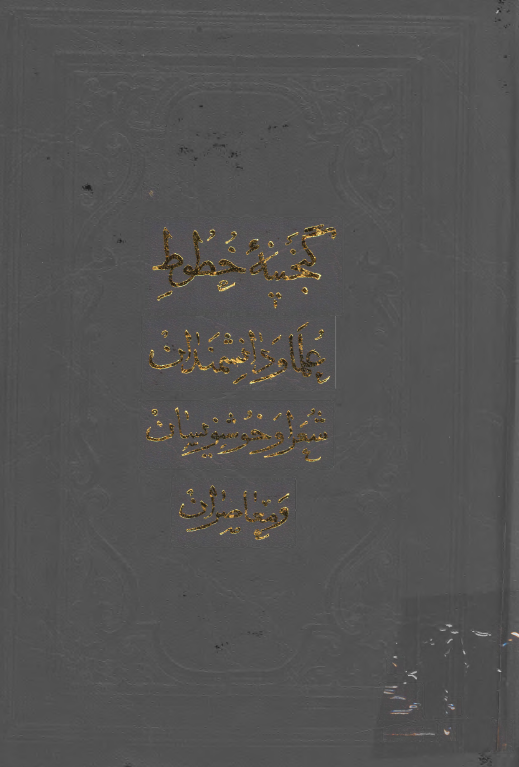 گنجینهٔ خُطوطِ
علما و دانشمندان
شعرا و خوشنویسان
و معاصران